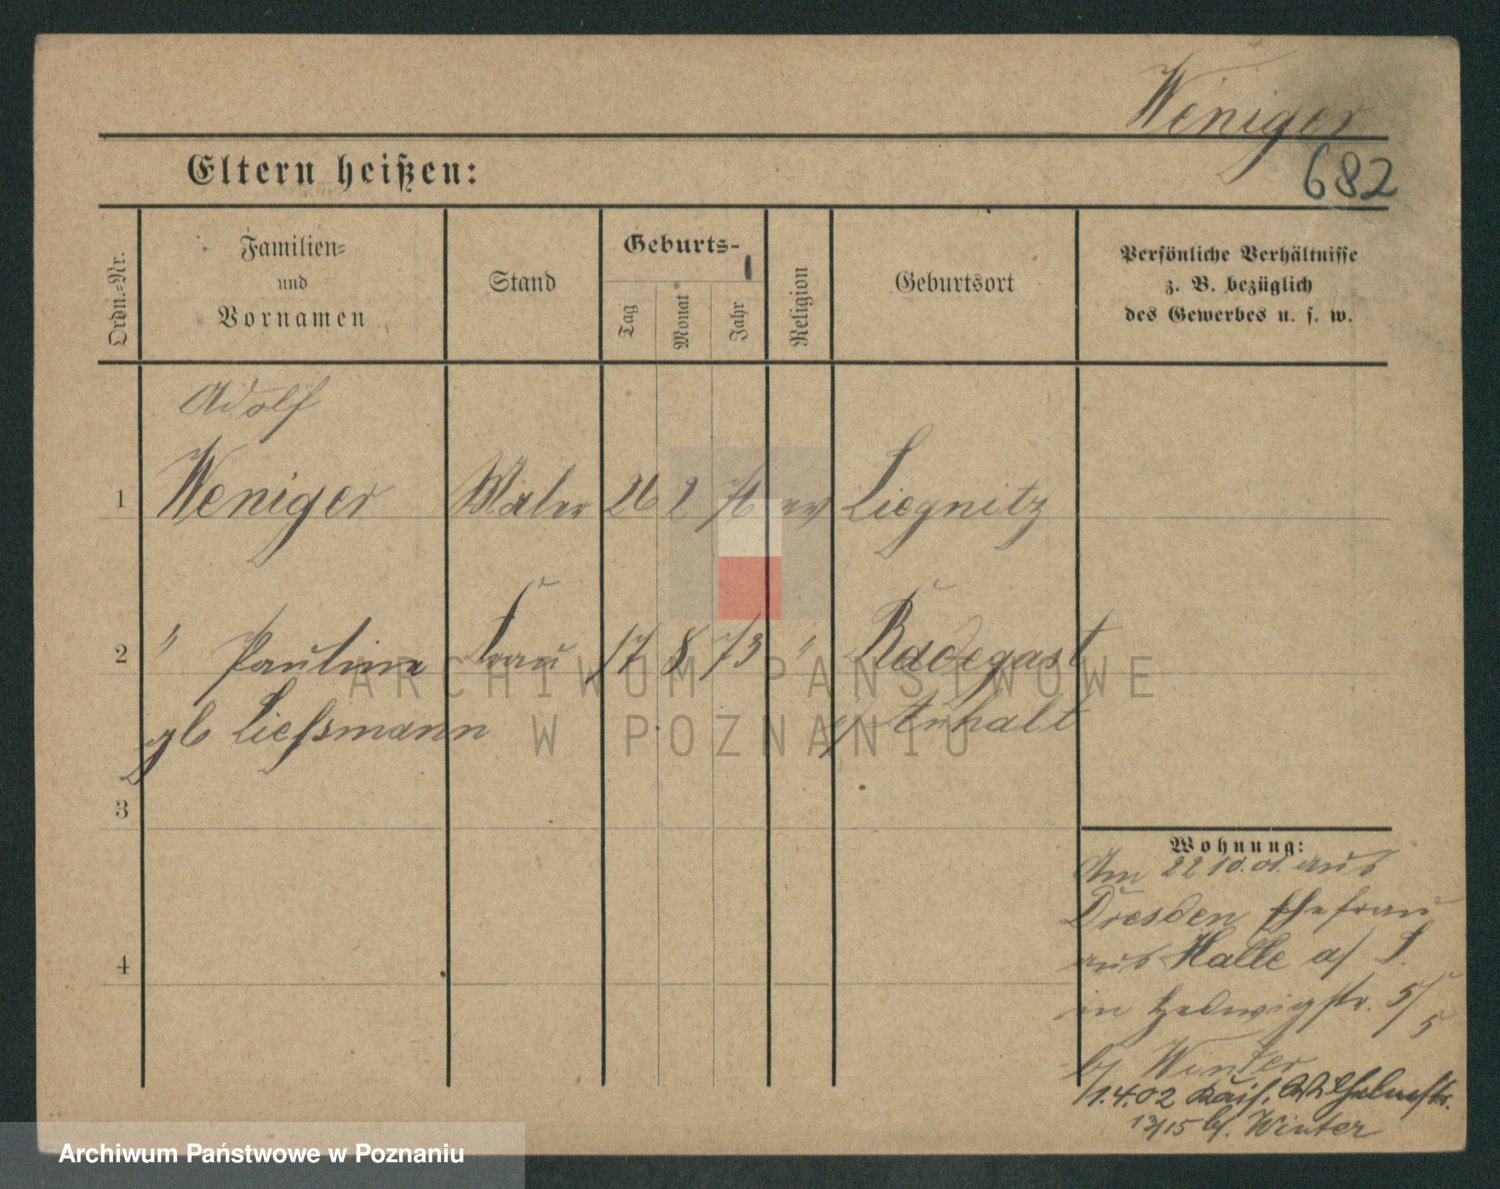 Weniger
682
Eltern heißen:
Ordn.-Nr.
Familien-
und
Vornamen
Stand
Geburts-
Tag
Monat
Jahr
Religion
Geburtsort
Persönliche Verhältnisse
z. B. bezüglich
des Gewerbes u. s. w.
Adolf
1 Weniger Maler 26 2 76 ev Liegnitz
2 " Pauline Frau 17 8 73 " Radegast
gb Liessmann Anhalt
3
4
Wohnung:
Am 22 10. 01. aus
Dresden Ehefrau
aus Halle a/ S.
in Hedwigstr. 5/5
b/ Winter
1.4.02 Kais. Wilhelmstr.
13/15 b/. Winter
ARCHIWUM PAŃSTWOWE
W POZNANIU
Archiwum Państwowe w Poznaniu